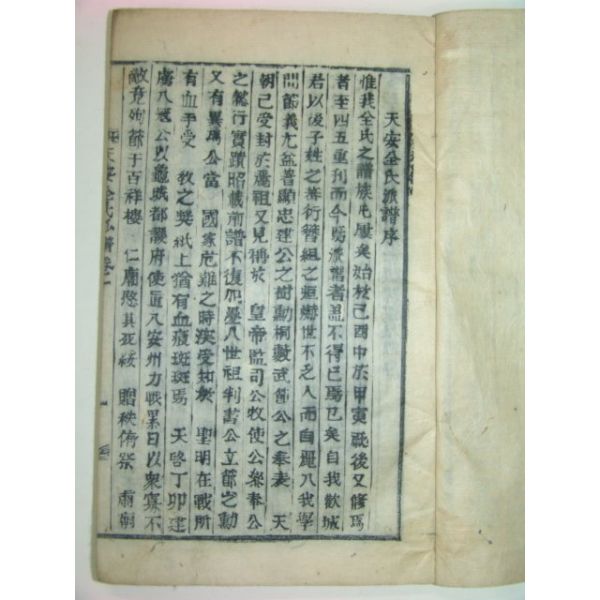 天安全氏派譜序
惟我全氏之譜族屯屢矣始於己酉中於甲寅戰後又修焉
者至四五重刊而今為派譜者蓋不得已焉也矣自我歡城
君以後子姓之蕃衍簪組之 世不乏人而自麗入我學
問節義尤益著顯忠達公之樹勳桐藪武節公之奉表 天
朝已受封於 祖又見稱於 皇帝監司公牧使公樂奉公
之懿行實蹟昭載前譜不復 八世祖判書公立節之勳
又有異焉公當 國家危難之時深受知於 聖明在戰所
有血手受 教之獎紙上猶有血痕斑斑焉 天啓丁卯建
虜入 公以 城都護府使 入安州力戰累日以衆寡不
敵竟殉節于百祥樓 仁廟愍其死綏 贈秩侑祭 肅廟
天安全氏派譜卷一